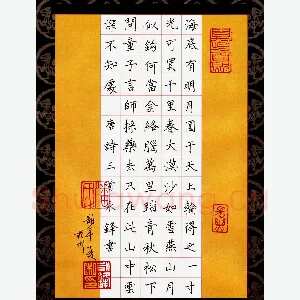 海底有明月圓于天上輪得之一寸
光可買千里春大漠沙如雪燕山月
似鈎何當金絡腦萬里踏青秋松下
問童子言師採藥去只在此山中雲
深不知處 唐詩三首 鋒書